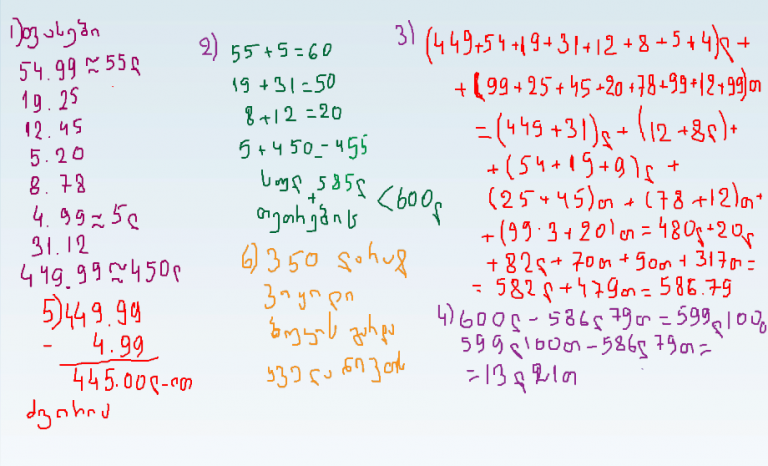 1) ფასები
54.99 ≈ 55ლ
19.25
12.45
5.20
8.78
4.99 ≈ 5ლ
31.12
449.99 ≈ 450ლ
5) 449.99
- 4.99
445.00ლ-ით
ძვირია
2) 55+5=60
19+31=50
8+12=20
5+450=455
სულ 585ლ
+ <600ლ
თეთრების
6) 350 ლარად
ვიყიდი
გარდა
ყველა ნივთს
3) (449+54+19+31+12+8+5+4)ლ +
+ (99+25+45+20+78+99+12+99)თ
=(449+31)ლ + (12+8ლ)+
+(54+19+9)ლ +
(25+45)თ + (78+12)თ+
+(99·3+20)თ=480ლ+20ლ
+82ლ+70თ+90თ+317თ=
=582ლ+479თ=586.79
4) 600ლ - 586ლ 79თ = 599ლ100თ
599ლ100თ-586ლ79თ=
=13ლ21თ